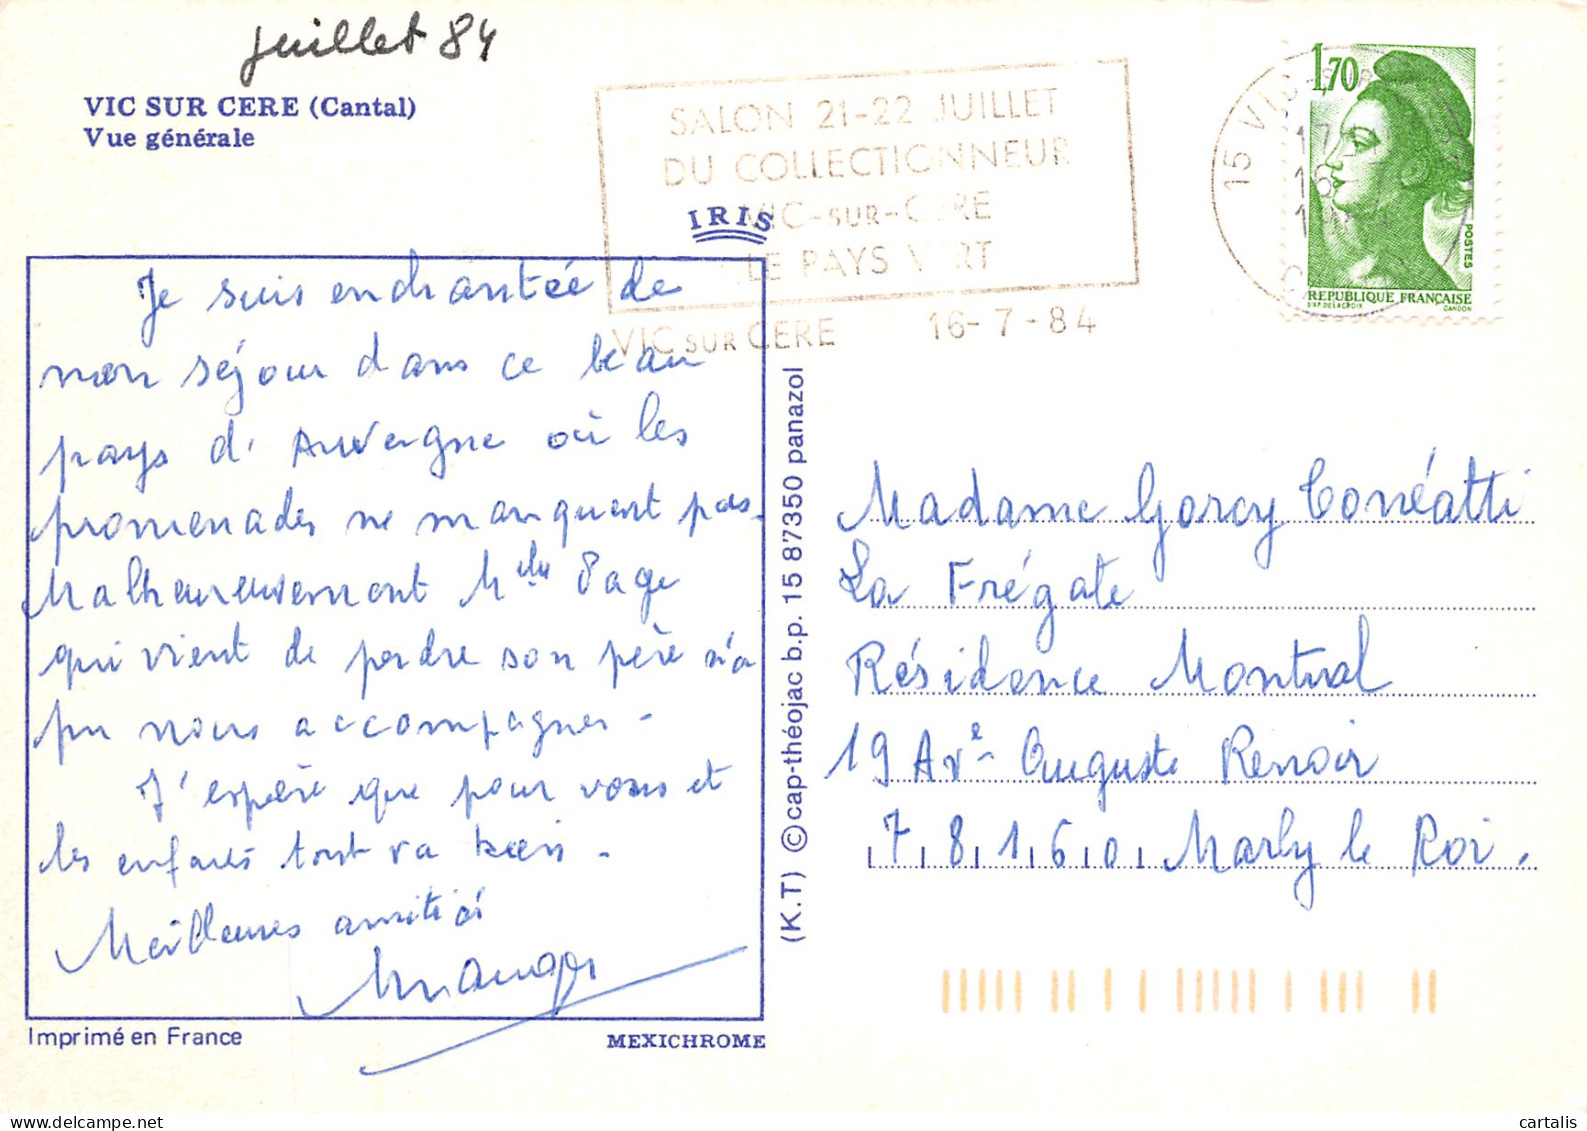 juillet 84
VIC SUR CERE (Cantal)
Vue générale
SALON 21-22 JUILLET
DU COLLECTIONNEUR
VIC-SUR-CERE
LE PAYS VERT
VIC SUR CERE 16-7-84
IRIS
15 VIC-S
16
1984
1,70
POSTES
REPUBLIQUE FRANÇAISE
D'AP. DELACROIX GANDON
Je suis enchantée de
mon séjour dans ce beau
pays d'Auvergne où les
promenades ne manquent pas.
Malheureusement Melle Page
qui vient de perdre son père n'a
pu nous accompagner -
J'espère que pour vous et
les enfants tout va bien -
Meilleures amitiés
Imprimé en France
MEXICHROME
(K.T) © cap-théojac b.p. 15 87350 panazol
Madame Gorcy
La Frégate
Résidence Montval
19 Ave Auguste Renoir
78160 Marly le Roi.
cartalis